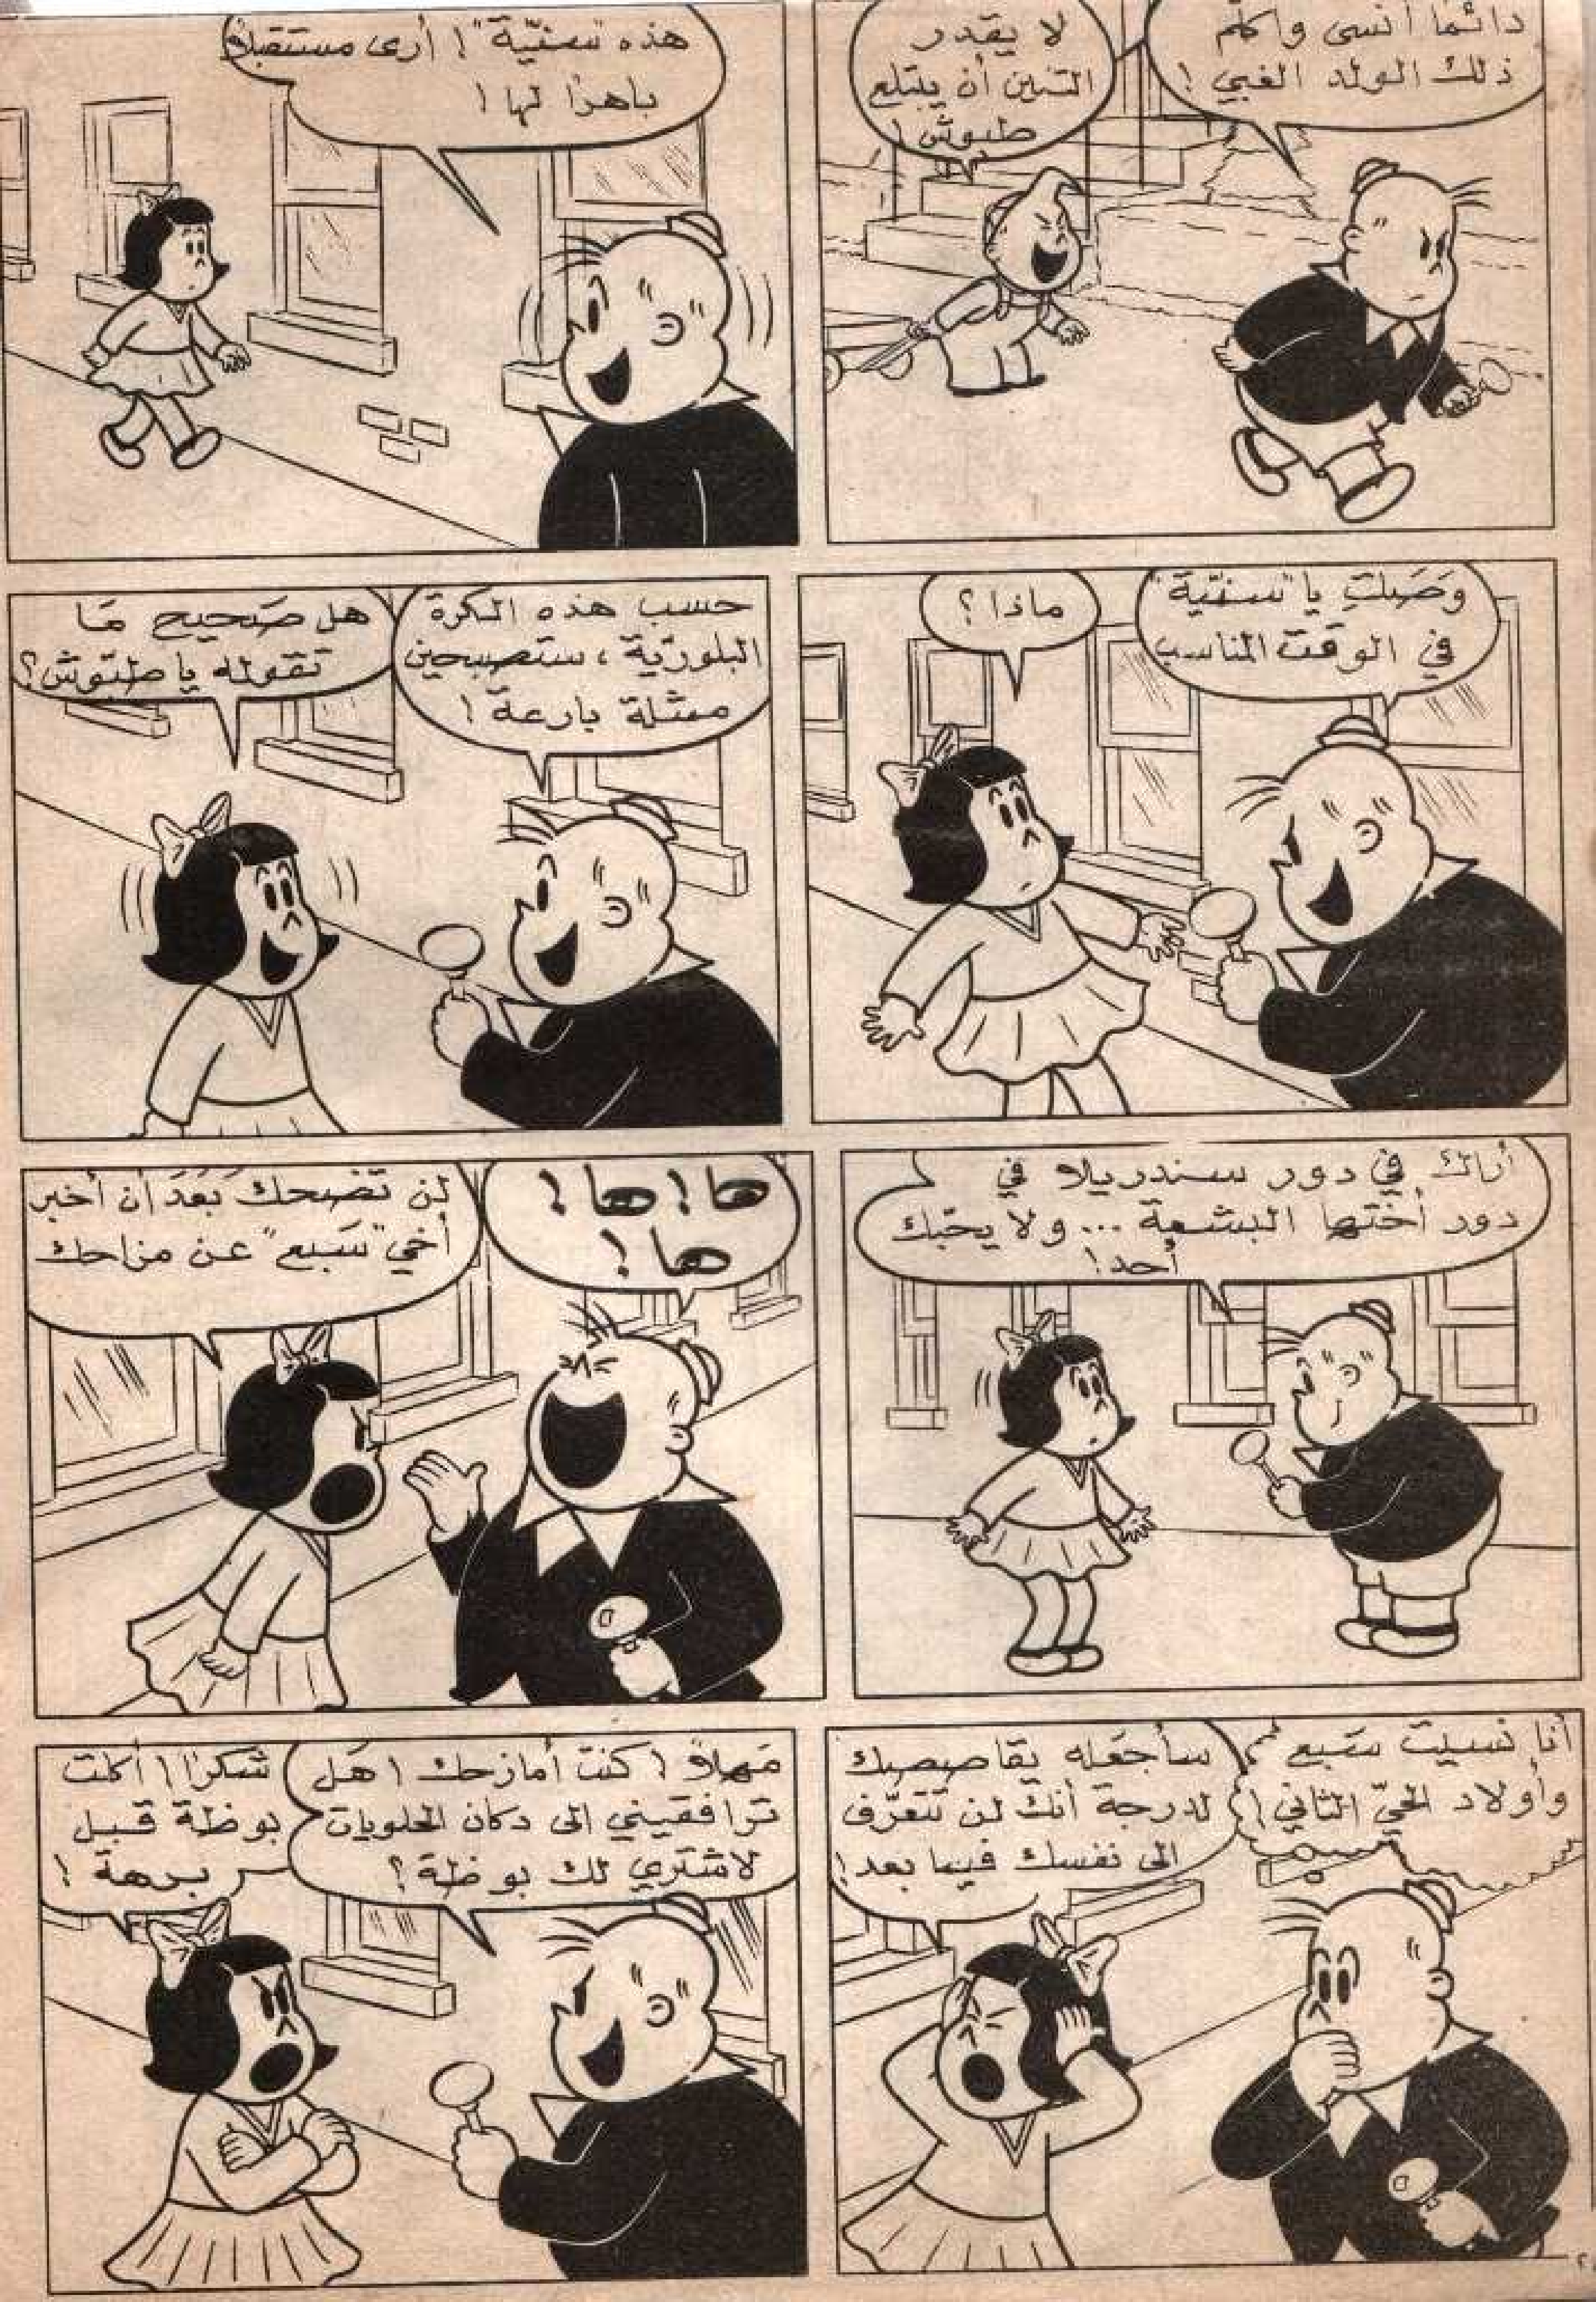 دائمًا أنسى واكلّم
ذلك الولد الغبي!
لا يقدر
التنين أن يبتلع
طبوش!
هذه "سنيّة"! أرى مستقبلاً
باهرًا لها!
وَصَلتِ يا "سنيّة"
في الوقت المناسب
ماذا؟
حسب هذه الكرة
البلوريّة، ستصبحين
ممثلة بارعة!
هل صَحيح مَا
تقوله يا طبّوش؟
أراك في دور سندريلا في
دور أختها البشعة... ولا يحبّك
أحد!
ها! ها!
ها!
لن تضحك بَعْدَ أن أخبر
أخي "سَبع" عن مزاحك
أنا نسيت سَبع
وأولاد الحيّ الثاني!
سأجعَله يقاصصك
لدرجة أنك لن تتعرّف
الى نفسك فيما بعد!
مَهلاً! كنت أمازحك! هَل
ترافقيني الى دكان الحلويات
لاشتري لك بوظة؟
شكرًا! أكلت
بوظة قبل
برهة!